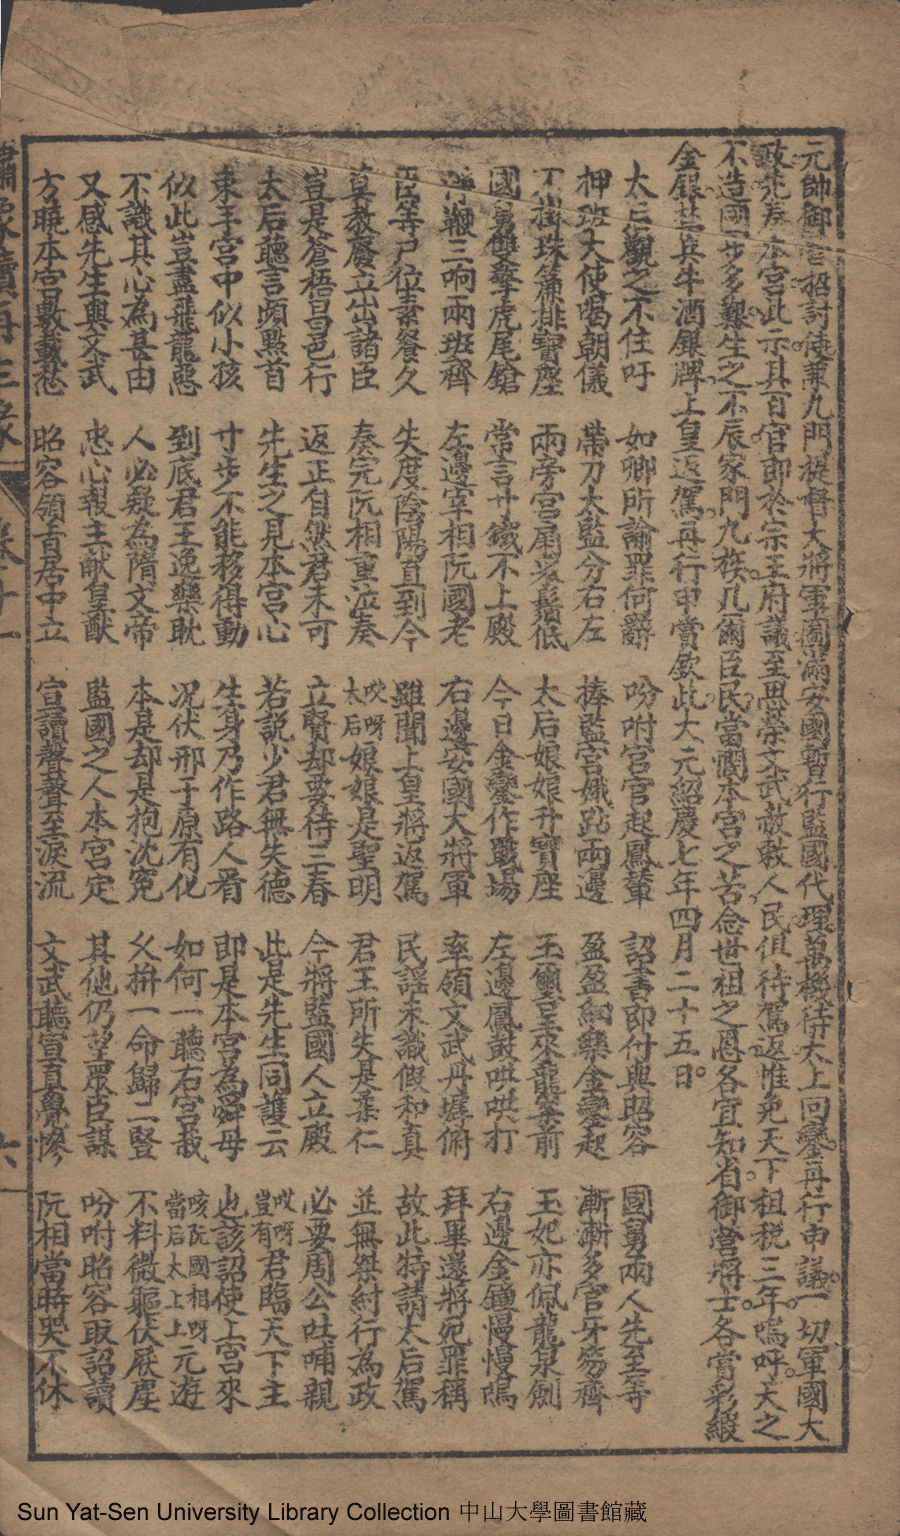 元帥御營招討使兼九門提督大將軍圖滿安國暫行監國代理萬機待太上回鑾再行申議一切軍國大
政先差本宮此示其百官即於宗王府議至恩榮文武赦救人民俱待駕返惟免天下租稅三年嗚呼天之
不造國步多艱生之不辰家門九族凡爾臣民當憫本宮之苦念世祖之恩各宜知省御營將士各賞彩緞
金銀其兵牛酒銀牌上皇返駕再行申賞欽此大元紹慶七年四月二十五日
太后觀之不住吁 如卿所諭罪何辭 吩咐宮官起鳳輦 詔書即付與昭容 國舅兩人先至等
押班大使喝朝儀 帶刀太監分右左 捧監宮娥跕兩邊 盈盈細樂金鑾起 漸漸多官牙笏齊
不掛珠簾排寶座 兩旁宮扇 低 太后娘娘升寶座 玉璽呈來龍案前 王妃亦佩龍泉劍
國舅雙擎虎尾鎗 常言寸鐵不上殿 今日金鑾作戰場 左邊鳳鼓哄哄打 右邊金鐘慢慢鳴
淨鞭三响兩班齊 左邊宰相阮國老 右邊安國大將軍 率領文武丹墀俯 拜畢還將死罪稱
臣等尸位素餐久 失度陰陽直到今 雖聞上皇將返駕 民謠未識假和真 故此特請太后駕
莫教廢立出諸臣 奏完阮相重泣奏 哎呀太后娘娘是聖明 君王所失是柔仁 並無桀紂行為政
豈是蒼梧昌邑行 返正自然君未可 立賢却要待三春 今將監國人立殿 必要周公吐哺親
太后聽言頻點首 先生之見本宮心 若說少君無失德 此是先生回護云 哎呀豈有君臨天下主
東手宮中似小孩 寸步不能移得動 生身乃作路人看 即是本宮為舜母 也該詔使上宮來
似此豈盡飛龍惡 到底君王逸樂耽 况伏邢于原有化 如何一聽右宮哉 咳阮國相呀當后太上上元遊
不識其心為甚由 人必疑為隋文帝 本是却是抱沈冤 父拚一命歸二豎 不料微軀伏厥塵
又感先生與文武 忠心報主猷皇猷 監國之人本宮定 其他仍望眾臣謀 吩咐昭容取詔讀
方曉本宮數載愁 昭容領旨居中立 宣讀聲聲至淚流 文武聽宣真覺慘 阮相當時哭不休
繡像續再生緣 卷十一
六
Sun Yat-Sen University Library Collection 中山大學圖書館藏